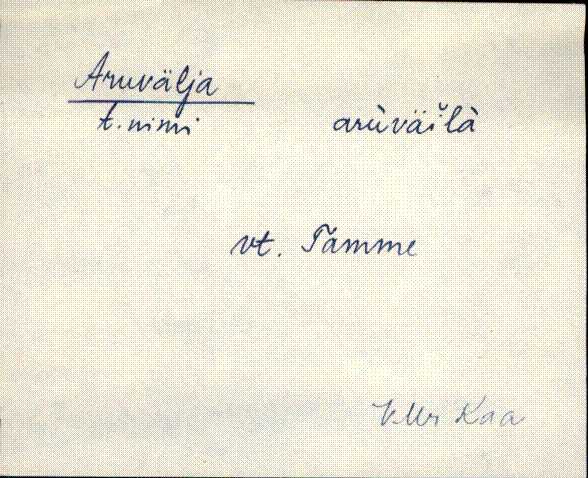 Aruvälja
t. nimi arùväĭlà
vt. Tamme
VMr Kaa